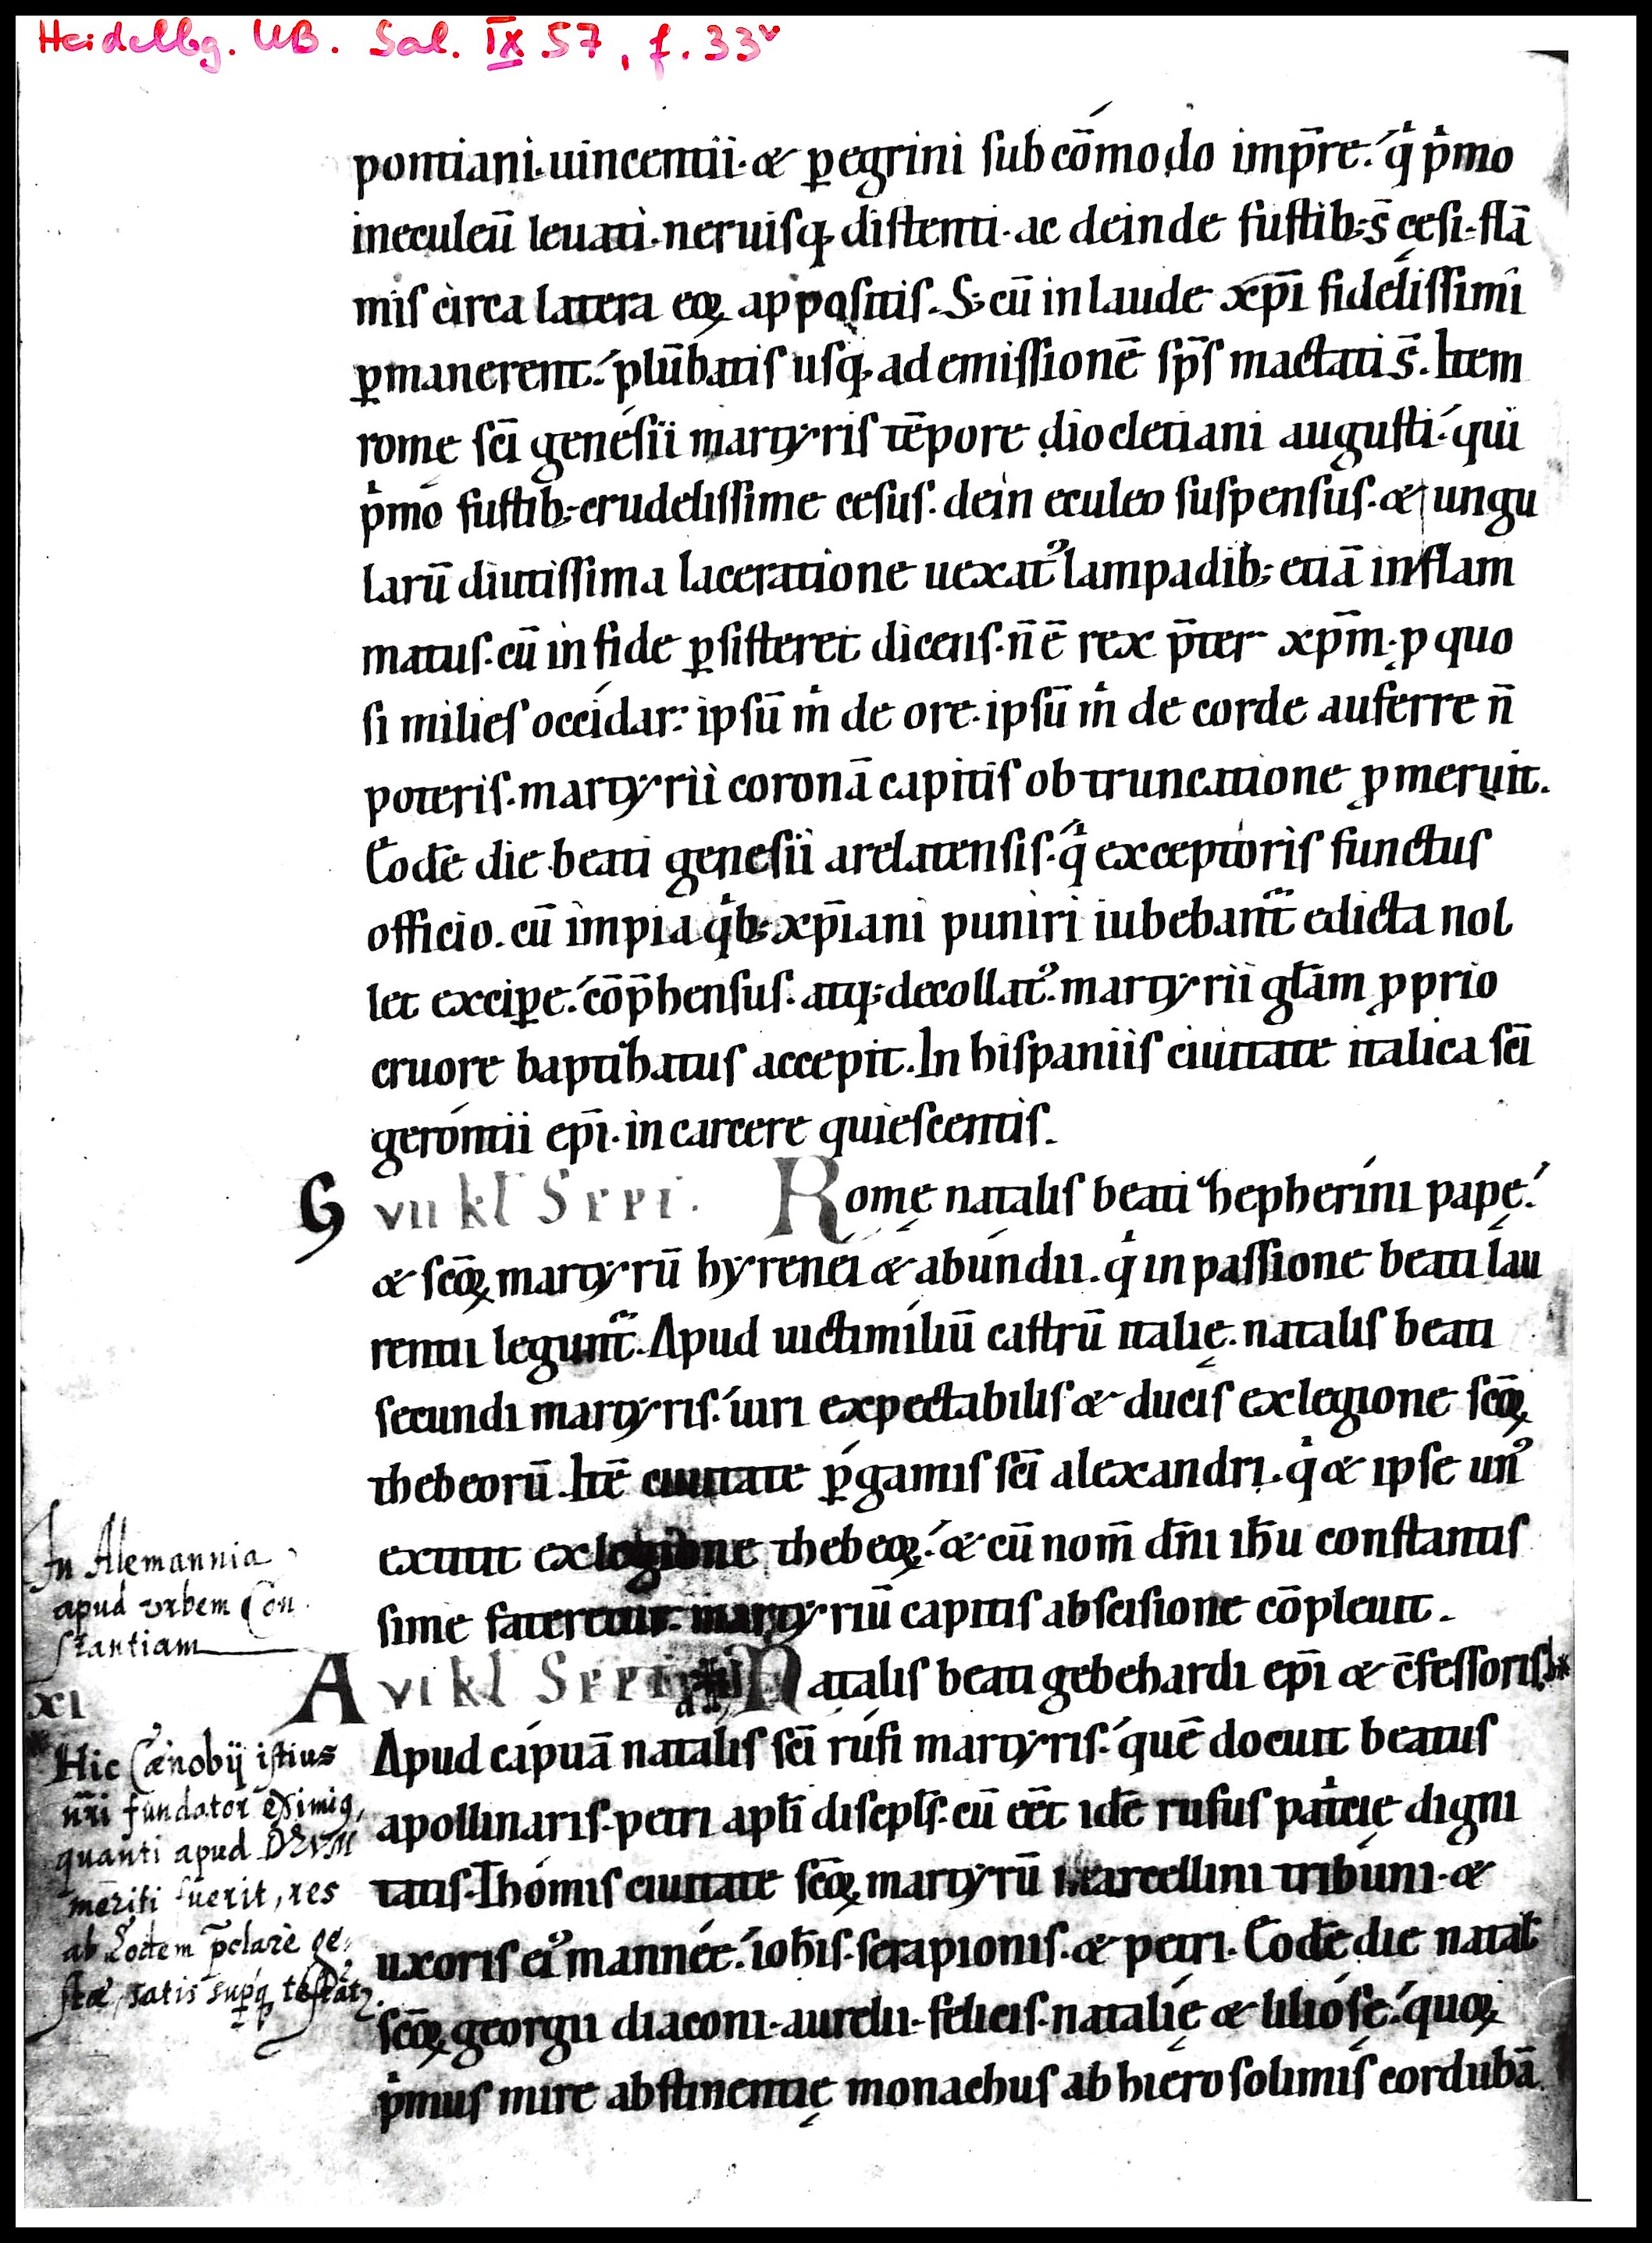 Heidelbg. UB. Sal. IX 57, f. 33v
pontiani·uincentii·& ꝑegrini ſub cōmodo imp̄re.ʼqͥ pͥmo
ineculeū leuati·neruiſq; diſtenti·ac deinde fuſtib; s̄ cęſi·flā
miſ circa latera eoꝝ appoſitiſ. S; cū in laude xp̄i fideliſſimi
ꝑmanerent.ʼplūbatiſ uſq; ad emiſſionē ſp̄ſ mactati s̄. Item
romę ſc̄i geneſii martyriſ tēpore diocletiani auguſti.ʼqui
pͥmo fuſtib; crudeliſſime ceſuſ. dein eculeo ſuſpenſuſ·& ungu
larū diutiſſima laceratione uexatꝰ lampadib; etiā inflam
matuſ·cū in fide ꝑſiſteret dicenſ·n̄ ē rex p̄ter xp̄m·ꝓ quo
ſi milieſ occidar: ipſū mͥ de ore·ipſū mͥ de corde auferre n̄
poteriſ·martyrii coronā capitiſ obtruncatione ꝓmeruit.
Eodē die beati geneſii arelatenſiſ·qͥ exceptoriſ functuſ
officio. cū impia qͥb; xp̄iani puniri iubebant᷑ edicta nol
let exciꝑe.ʼcōp̄henſuſ. atq; decollatꝰ. martyrii gl̄am ꝓprio
cruore baptizatuſ accepit. In hiſpaniiſ ciuitate italica ſc̄i
gerontii ep̄i·in carcere quieſcentiſ.
G VII kl̄ SEPT. Romę nataliſ beati zepherini papę.ʼ
& ſc̄oꝝ martyrū hyrenei & abundii. qͥ in paſſione beati lau
rentii legunt᷑. Apud uictimiliū caſtrū italię. nataliſ beati
ſecundi martyriſ.ʼuiri expectabiliſ & duciſ ex legione ſc̄oꝝ
thebeorū. Itē ciuitate ꝑgamiſ ſc̄i alexandri·qͥ & ipſe unꝰ
extitit ex legione thebeoꝝ.ʼ& cū nom̄ dn̄i ih̄u conſtantiſ
ſime fateretur. martyriū capitiſ abſciſione cōpleuit.
In Alemannia
apud vrbem Con
ſtantiam
A VI kl̄ SEPT. Nataliſ beati gebehardi ep̄i & c̄feſſoriſ.
XI
Apud capuā nataliſ ſc̄i rufi martyriſ.ʼquē docuit beatuſ
apollinariſ·petri apl̄i diſcipl̄ſ·cū eēt idē rufuſ patͥcię digni
tatiſ. Thomiſ ciuitate ſc̄oꝝ martyrū marcellini tribuni·&
uxoriſ eiꝰ manneę.ʼioh̄iſ·ſerapioniſ·& petri. Eodē die natal̄
ſc̄oꝝ georgii diaconi·aurelii·feliciſ·natalię & lilioſę.ʼquoꝝ
pͥmuſ mirę abſtinentię monachuſ ab hieroſolimiſ cordubā
Hic Cænobij iſtius
nr̄i fundator eximiꝰ,
quanti apud DEVM
meriti fuerit, res
ab Eodem p̄clarè ge,
ſtæ, satis supq́ teſtãt᷑.